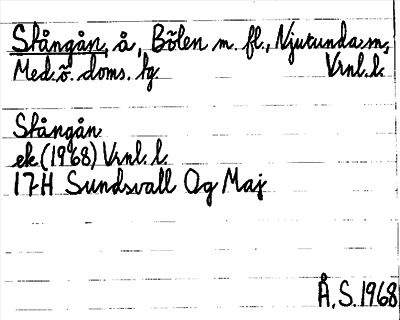 Stångån, å, Bölen m. fl., Njurunda sn,
Med. ö. doms. hg Vrnl. l.
Stångån
ek (1968) Vrnl. l.
17H Sundsvall Og Maj
Å. S. 1968